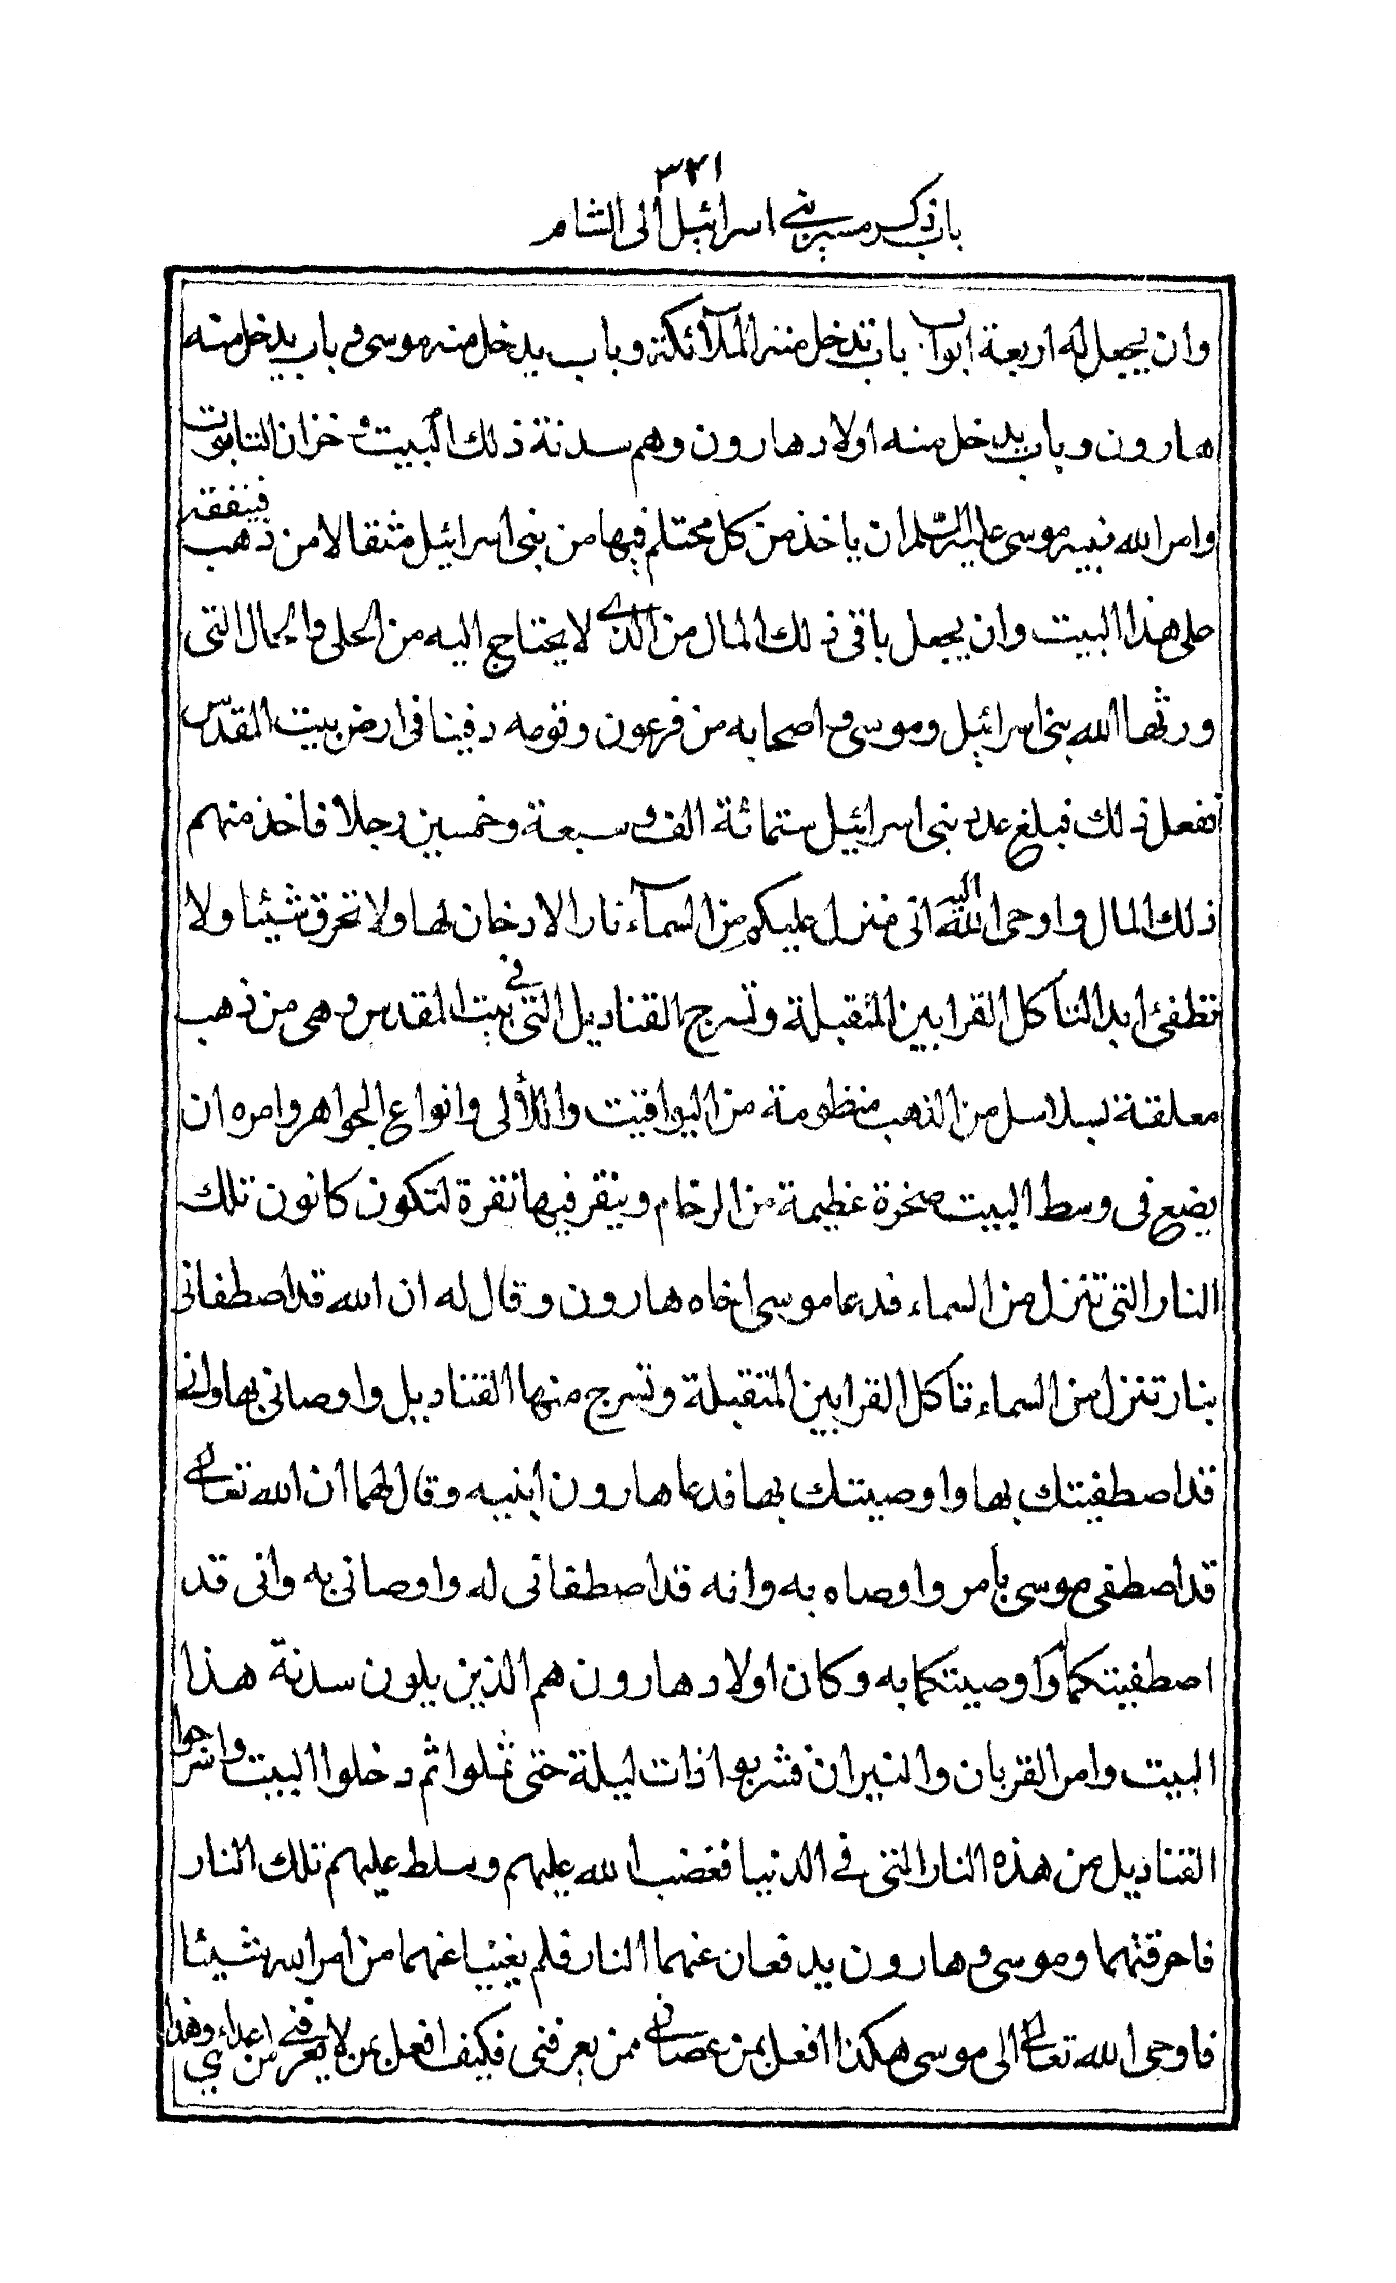 ٣٢١
باب ذكر مسير بني اسرائيل الى الشام
وان يجعل له اربعة ابواب باب تدخل منه الملآئكة وباب يدخل منه موسى و باب يدخل منه
هارون و باب يدخل منه اولاد هارون وهم سدنة ذلك البيت و خزان التابوت
وامر الله نبيه موسى عليه السلم ان ياخذ من كل محتلم فيها من بنى اسرائيل مثقالا من ذهب فينفقه
على هذا البيت وان يجعل باقى ذلك المال من الذي لا يحتاج اليه من الحلى و الحمال التى
ورثها الله بنى اسرائيل وموسى و اصحابه من فرعون وقومه دفينا فى ارض بيت المقدس
ففعل ذلك فبلغ عدد بنى اسرائيل ستمائة الف و سبعة و خمسين رجلا فاخذ منهم
ذلك المال واوحى الله اليه انى منزل عليكم من السمآء نارا لا دخان لها ولا تحرق شيئا ولا
تطفئ ابدا لتأكل القرابين المتقبلة وتسرج القناديل التى في بيت المقدس و هى من ذهب
معلقة بسلاسل من الذهب منظومة من اليواقيت واللألى وانواع الجواهر وامره ان
يضع فى وسط البيت صخرة عظيمة من الرخام وينقر فيها نقرة لتكون كانون تلك
النار التى تنزل من السماء فدعا موسى اخاه هارون وقال له ان الله قد اصطفانى
بنار تنزل من السماء تأكل القرابين المتقبلة وتسرج منها القناديل واوصانى بها وانى
قد اصطفيتك بها واوصيتك بها فدعا هارون ابنيه وقال لهما ان الله تعالى
قد اصطفى موسى بأمر واوصاه به وانه قد اصطفانى له واوصانى به وانى قد
اصطفيتكما وأوصيتكما به وكان اولاد هارون هم الذين يلون سدنة هذا
البيت وامر القربان والنيران فشربوا ذات ليلة حتى ثملوا ثم دخلوا البيت واسرجوا
القناديل من هذه النار التى في الدنيا فغضب الله عليهم وسلط عليهم تلك النار
فاحرقتهما وموسى و هارون يدفعان عنهما النار فلم يغنيا عنهما من امر الله شيئا
فاوحى الله تعالى الى موسى هكذا افعل بمن عصانى ممن يعرفنى فكيف افعل بمن لا يعرفني من اعدائي وهذا